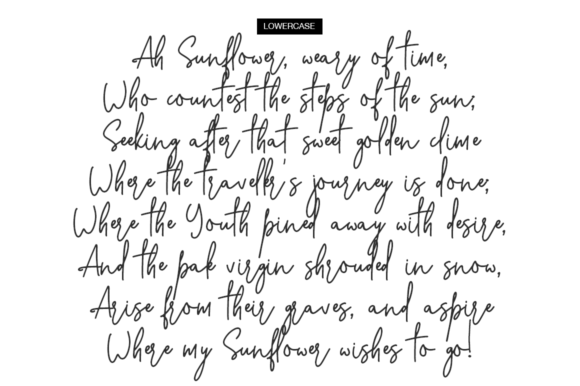 LOWERCASE
Ah Sunflower, weary of time,
Who countest the steps of the sun;
Seeking after that sweet golden clime
Where the traveller's journey is done;
Where the Youth pined away with desire,
And the pale virgin shrouded in snow,
Arise from their graves, and aspire
Where my Sunflower wishes to go!